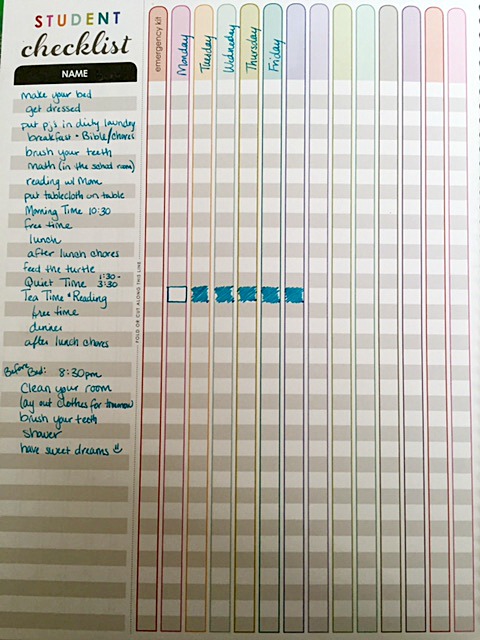 STUDENT
checklist
NAME
emergency kit
Monday
Tuesday
Wednesday
Thursday
Friday
make your bed
get dressed
put pj's in dirty laundry
breakfast • Bible/chores
brush your teeth
math (in the school room)
reading w/ Mom
put tablecloth on table
Morning Time 10:30
free time
lunch
after lunch chores
feed the turtle
Quiet Time 1:30-3:30
Tea Time • Reading
free time
dinner
after lunch chores
FOLD OR CUT ALONG THIS LINE
Before Bed: 8:30pm
Clean your room
lay out clothes for tomorrow
brush your teeth
shower
have sweet dreams